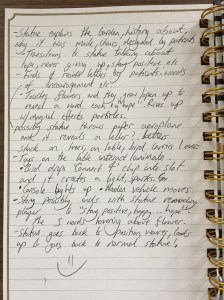 - Statue explains the Garden, history about
why it was made, stones, designed by patients
- Transitions to statue talking about
hope, never giving up, stay positive etc.
- Finds 4 tinted letters by patients words
of encouragement etc.
- Touches flowers and they grow/open up to
reveal a word each ie "hope". Rises up
w/ magical effects, particles.
possibly statue throws paper aeroplane
and it reveals as letter? letters
stuck on trees, on table, bird carries 1 over.
- Toys on the table interact/animate.
- Bird drops connect 4 chip into slot
and it creates a light, sparkles. Game
- Console lights up - Hidden vehicle moves.
- Story possibly ends with statue reminding
player to "stay positive, happy... hope".
The 3 words hovering above flower.
- Statue goes back to position, waves, looks
up & goes back to normal statue!